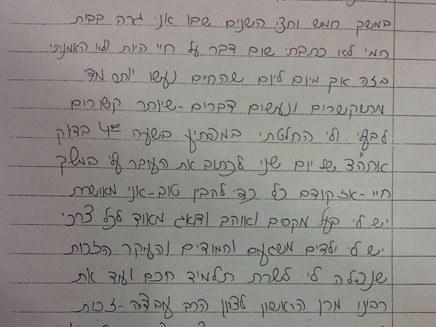 במשך חמש וחצי השנים שבו אני גרה בבית
חמי לא כתבתי שום דבר על חיי היות ולא האמנתי
בזה אך מיום ליום שהחיים נעשו יותר מדי
מתוקשרים ונעשים דברים - שיותר קשורים
לבעלי ולי החלטתי במפתיע בשעה 4 בדיוק
של יום שני לכתוב את העובר עלי במשך
חיי - אז קודם כל כדי להבין טוב - אני מאושרת
יש לי בעל מקסים ואוהב ודואג מאוד לכל צרכי
יש לי ילדים משגעים וחמודים והעיקר הזכות
שנפלה לי לשרת תלמיד חכם ועוד את
רבינו מרן הראשון לציון הרב עובדיה - זכות